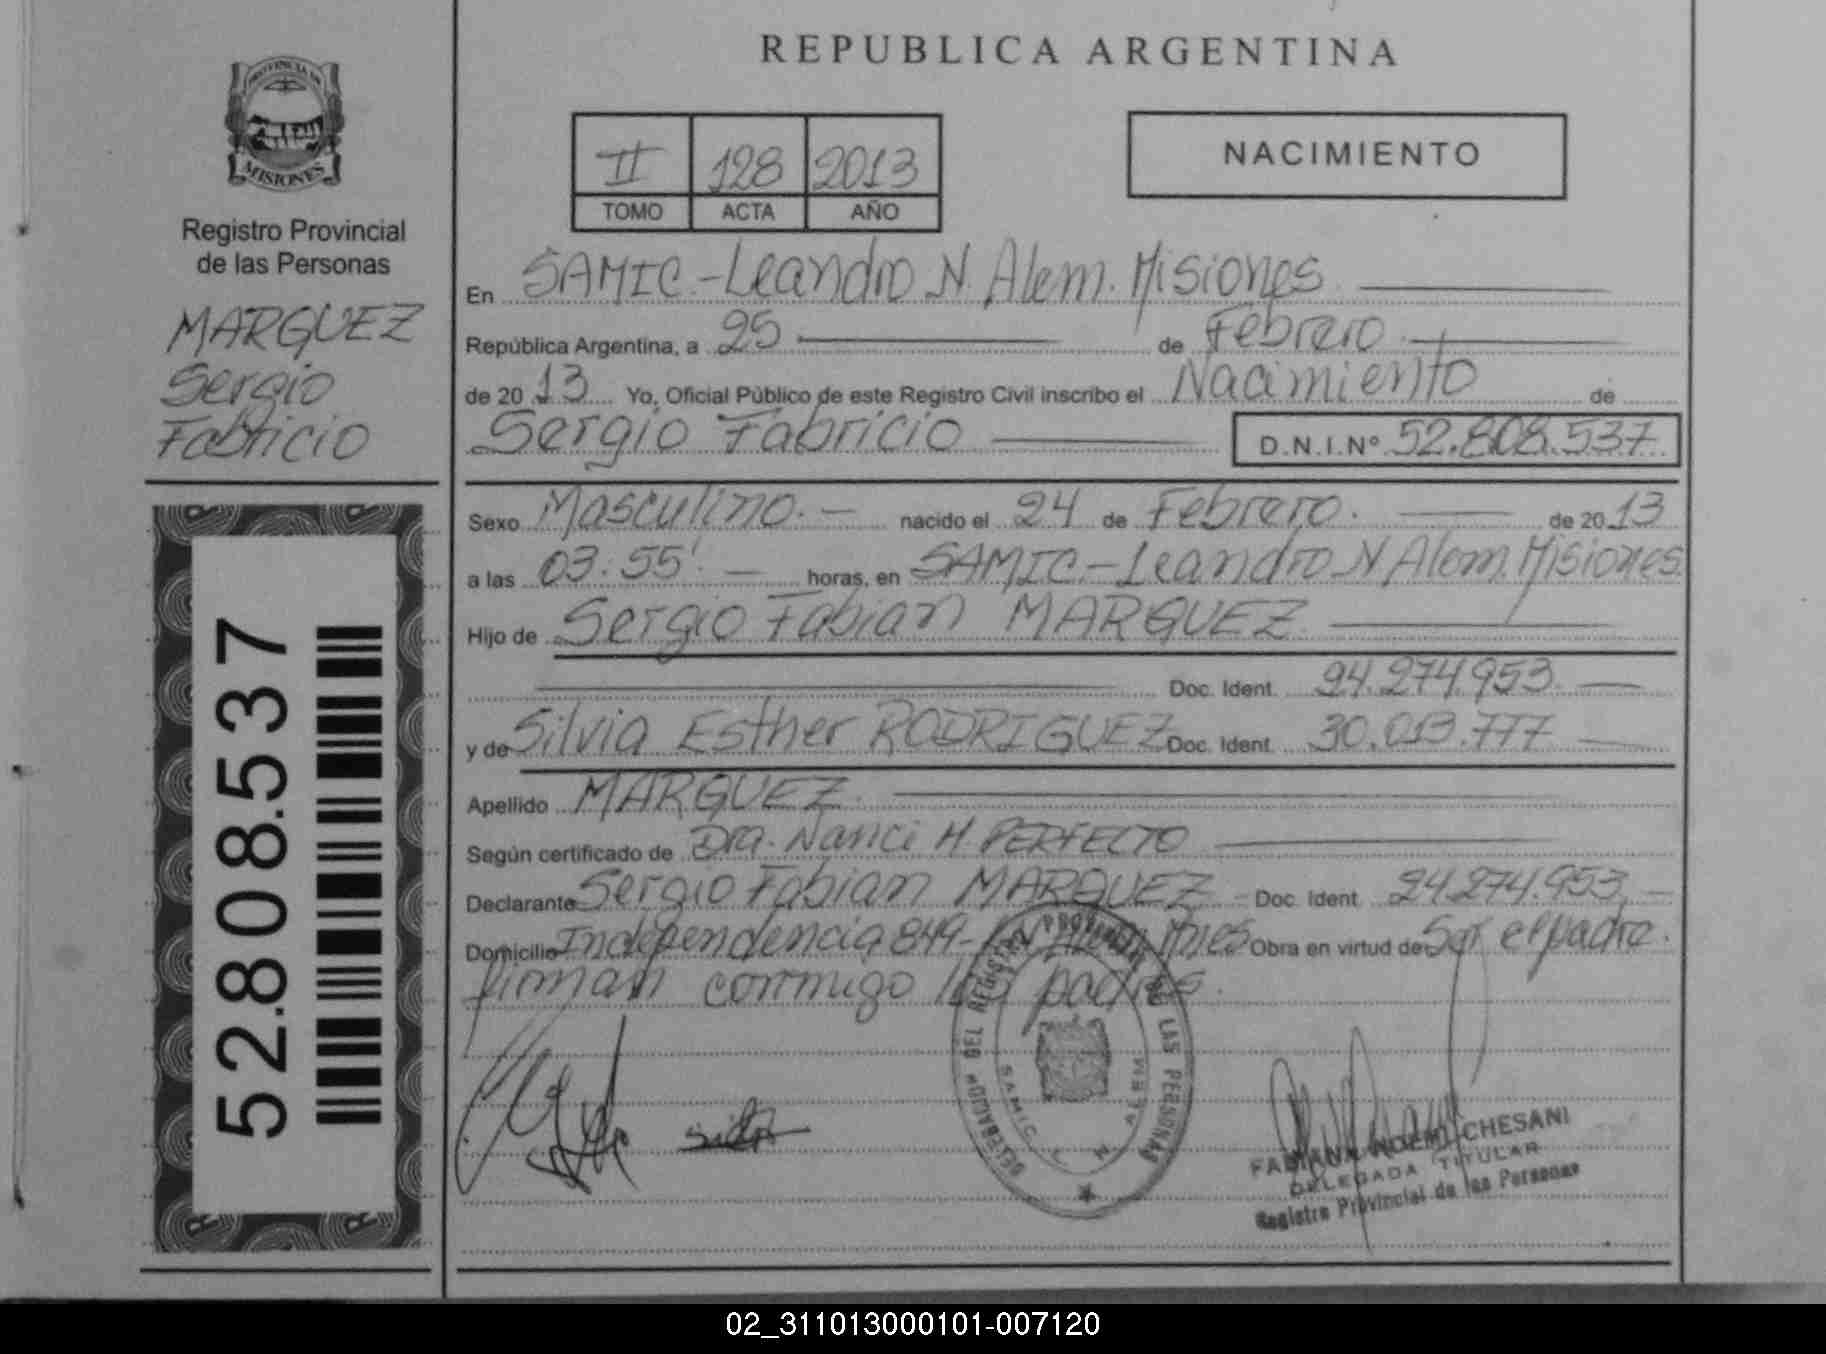 PROVINCIA DE
MISIONES
Registro Provincial
de las Personas
MARQUEZ
Sergio
Fabricio
52.808.537
REPUBLICA ARGENTINA
II 128 2013
TOMO ACTA AÑO
NACIMIENTO
En SAMIC.-Leandro N. Alem. Misiones
República Argentina, a 25 de Febrero
de 2013 Yo, Oficial Público de este Registro Civil inscribo el Nacimiento de
Sergio Fabricio D.N.I.Nº 52.808.537
Sexo Masculino.- nacido el 24 de Febrero. de 2013
a las 03:55'. - horas, en SAMIC.-Leandro N Alem. Misiones.
Hijo de Sergio Fabian MARQUEZ.
Doc. Ident. 24.274.953.
y de Silvia Esther RODRIGUEZ Doc. Ident. 30.013.777
Apellido MARQUEZ.
Según certificado de Dra. Nanci H. PERFECTO
Declarante Sergio Fabian MARQUEZ - Doc. Ident. 24.274.953.-
Domicilio Independencia 849- Mnes Obra en virtud de Ser el padre.
firman conmigo los padres.
DELEGACION DEL REGISTRO PROVINCIAL DE LAS PERSONAS
SAMIC L N ALEM
FABIANA NOEMI CHESANI
DELEGADA TITULAR
Registro Provincial de las Personas
02_311013000101-007120